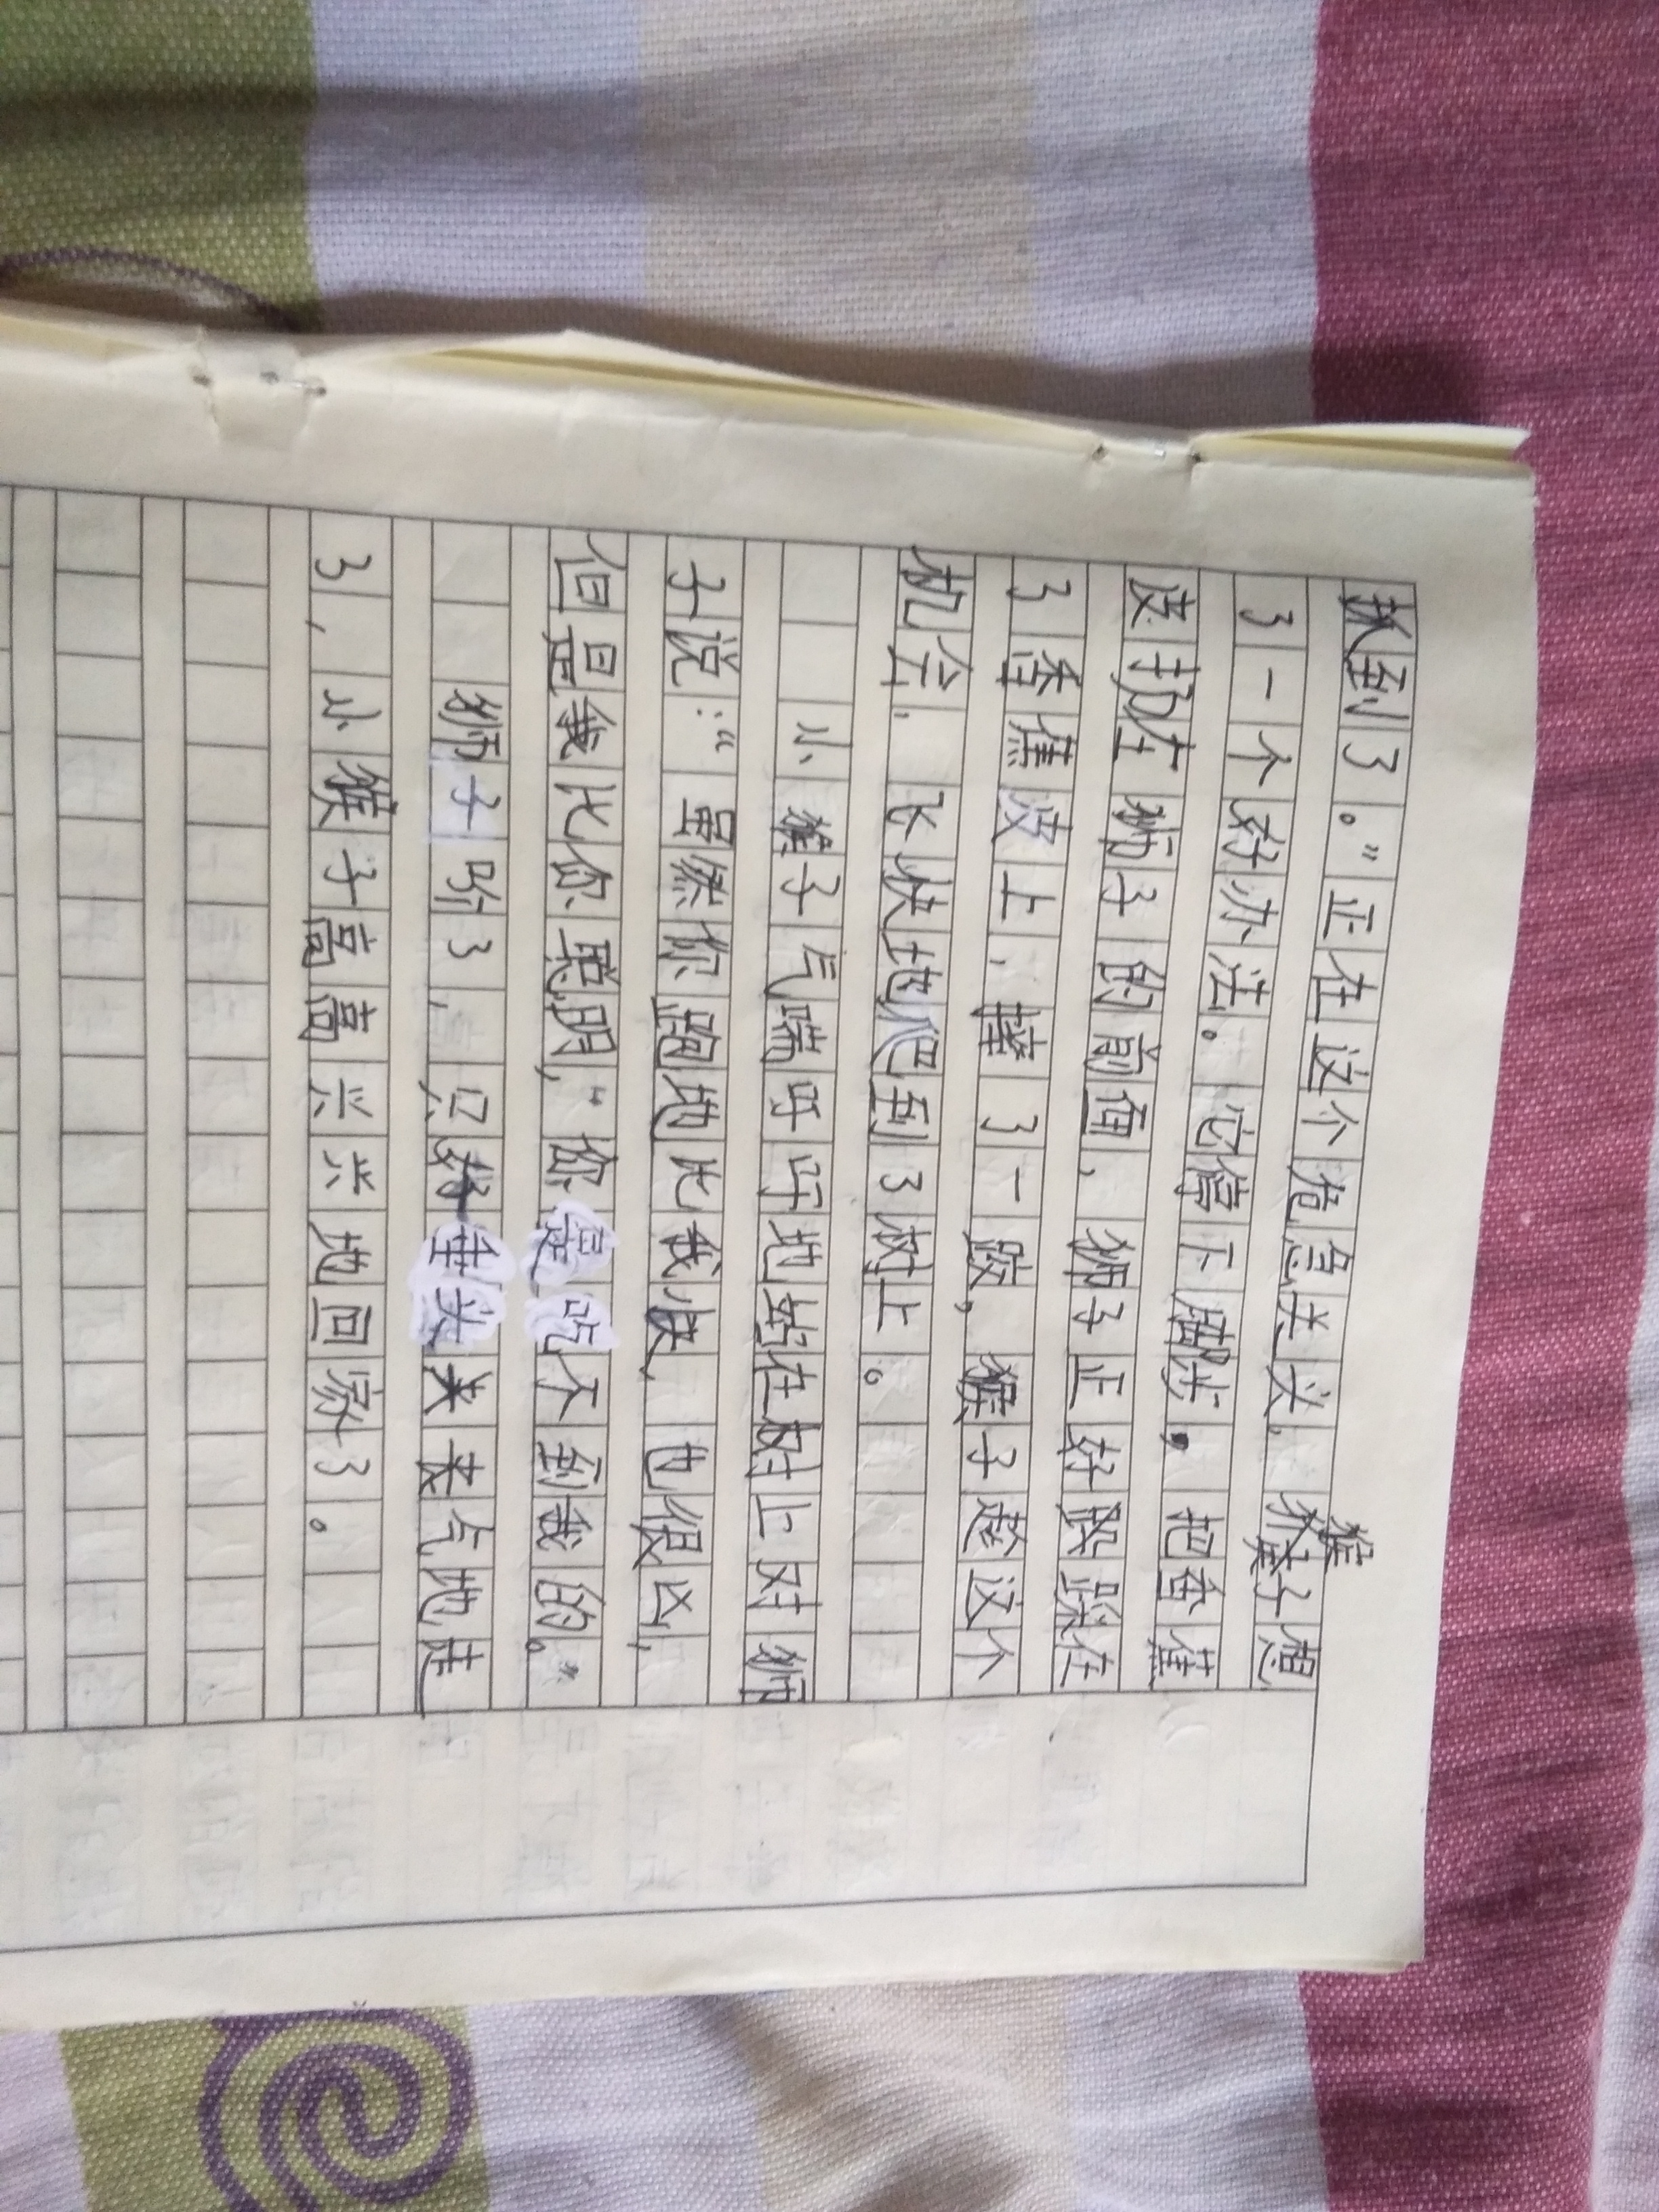 抓到了。”正在这个危急关头，猴子想
了一个好办法。它停下脚步，把香蕉
皮扔在狮子的前面，狮子正好踩在
了香蕉皮上，摔了一跤，猴子趁这个
机会，飞快地爬到了树上。
小猴子气喘呼呼地站在树上对狮
子说：“虽然你跑地比我快，也很凶，
但是我比你聪明，“你是吃不到我的。”
狮子听了，只好垂头丧气地走
了，小猴子高高兴兴地回家了。